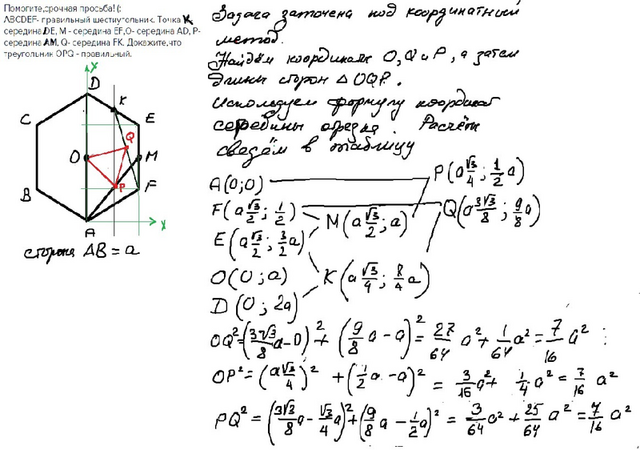 Помогите,срочная просьба!(:
ABCDEF- правильный шестиугольник. Точка K,
середина DE, M - середина EF,O- середина AD, P-
середина AM, Q- середина FK. Докажите,что
треугольник OPQ - правильный.
x
D
K
C
E
Q
O
M
P
B
F
A
x
сторона AB = a
Задача заточена под координатный
метод.
Найдём координаты O, Q и P, а затем
длины сторон Δ OQP.
Используем формулу координат
середины отрезка. Расчёты
сведём в таблицу
A(0;0)
P(a√3/4; 1/2 a)
F(a√3/2; 1/2)
M(a√3/2; a)
Q(a 3√3/8; 9/8 a)
E(a√3/2; 3/2 a)
O(0; a)
K(a√3/4; 8/4 a)
D(0; 2a)
OQ² = (3√3/8 a - 0)² + (9/8 a - a)² = 27/64 a² + 1/64 a² = 7/16 a² ;
OP² = (a√3/4)² + (1/2 a - a)² = 3/16 a² + 1/4 a² = 7/16 a²
PQ² = (3√3/8 a - √3/4 a)² + (9/8 a - 1/2 a)² = 3/64 a² + 25/64 a² = 7/16 a²